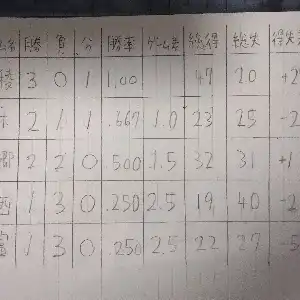 勝 負 分 勝率 ゲーム差 総得 総失 得失
3 0 1 1.00 47 20 +2
2 1 1 .667 1.0 23 25 -2
2 2 0 .500 1.5 32 31 +1
西 1 3 0 .250 2.5 19 40 -2
富 1 3 0 .250 2.5 22 27 -5